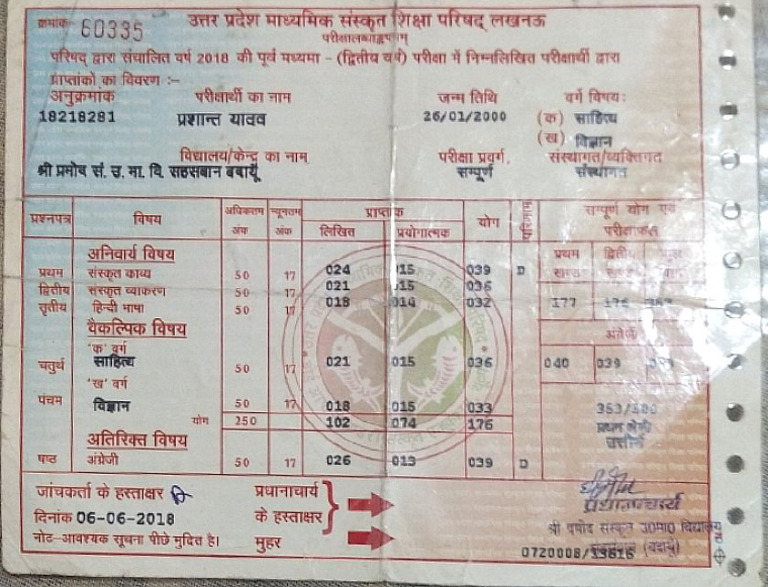 क्रमांक 60335
उत्तर प्रदेश माध्यमिक संस्कृत शिक्षा परिषद् लखनऊ
परीक्षालब्धाङ्कपत्रम्
परिषद् द्वारा संचालित वर्ष 2018 की पूर्व मध्यमा – (द्वितीय वर्ष) परीक्षा में निम्नलिखित परीक्षार्थी द्वारा
प्राप्तांकों का विवरण :–
अनुक्रमांक परीक्षार्थी का नाम जन्म तिथि वर्ग विषयः
18218281 प्रशान्त यादव 26/01/2000 (क) साहित्य
(ख) विज्ञान
विद्यालय/केन्द्र का नाम परीक्षा प्रवर्ग, संस्थागत/व्यक्तिगत
श्री प्रमोद सं. उ. मा. वि. सहसबान बदायूँ सम्पूर्ण संस्थागत
प्रश्नपत्र विषय अधिकतम अंक न्यूनतम अंक प्राप्तांक योग परिणाम सम्पूर्ण योग एवं
लिखित प्रयोगात्मक परीक्षाफल
अनिवार्य विषय प्रथम खण्ड द्वितीय
प्रथम संस्कृत काव्य 50 17 024 015 039 D
द्वितीय संस्कृत व्याकरण 50 17 021 015 036
तृतीय हिन्दी भाषा 50 17 018 014 032 177 176 353
वैकल्पिक विषय
'क' वर्ग अंग्रेजी
चतुर्थ साहित्य 50 17 021 015 036 040 039
'ख' वर्ग
पंचम विज्ञान 50 17 018 015 033 353/500
योग 250 102 074 176 प्रथम श्रेणी
अतिरिक्त विषय उत्तीर्ण
षष्ठ अंग्रेजी 50 17 026 013 039 D
जांचकर्ता के हस्ताक्षर प्रधानाचार्य प्रधानाचार्य
दिनांक 06-06-2018 के हस्ताक्षर श्री प्रमोद संस्कृत उ0मा0 विद्यालय
नोट–आवश्यक सूचना पीछे मुद्रित है। मुहर (बदायूँ)
0720008/33616